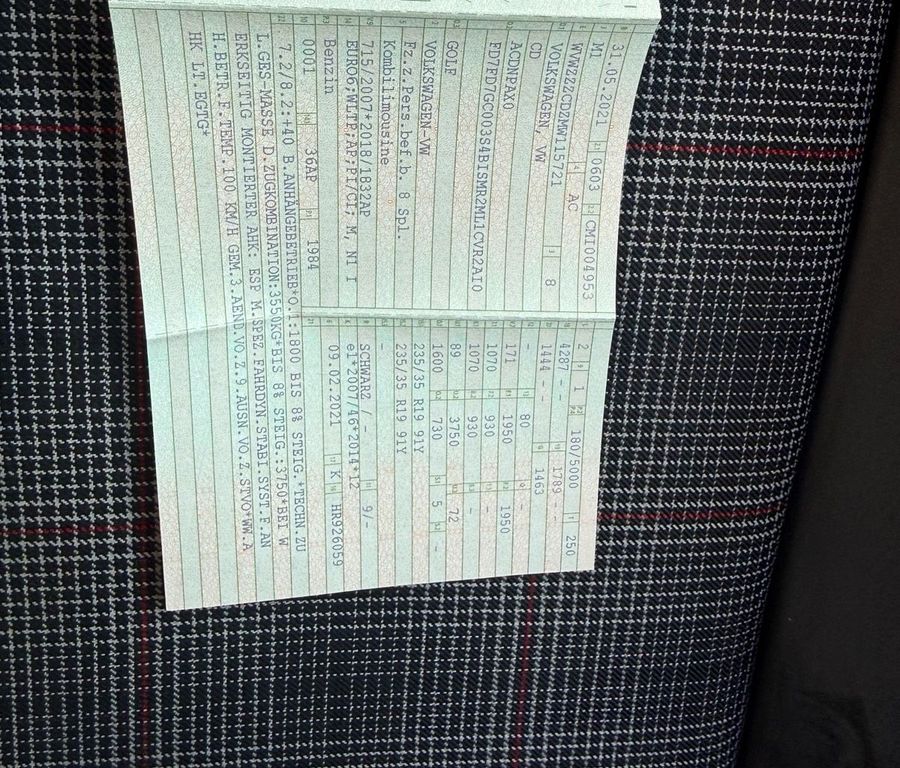 31.05.2021 0603 CMI004953
M1 AC 8
WVWZZZCDZMW115721
VOLKSWAGEN, VW
CD
ACDNPAX0
VOLKSWAGEN-VW
GOLF
Fz.z.Pers.bef.b. 8 Spl.
Kombilimousine
715/2007*2018/1832AP
EURO6;WLTP;AP;PI/CI; M, N1 I
Benzin
0001 36AP 1984
2 1 180/5000 250
4287 - - 1789 - -
1444 - - 1463
- 80 - -
171 1950 1950
1070 930 -
1070 930 -
89 3750 72
1600 730 5 -
235/35 R19 91Y
235/35 R19 91Y
-
SCHWARZ / - 9/-
e1*2007/46*2014*12
09.02.2021 K HR926059
7.2/8.2:+40 B.ANHÄNGEBETRIEB*O.1:1800 BIS 8% STEIG.*TECHN.ZU
L.GES-MASSE D.ZUGKOMBINATION:3550KG*BIS 8% STEIG.:3750*BEI W
ERKSEITIG MONTIERTER AHK: ESP M.SPEZ.FAHRDYN.STABI.SYST.F.AN
H.BETR.F.TEMP.100 KM/H GEM.3.AEND.VO.Z.9.AUSN.VO.Z.STVO*WW.A
HK LT.EGTG*